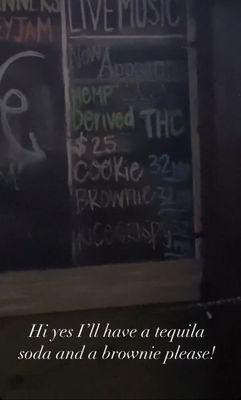 NNERS LIVE MUSIC
EYJAM
Now
Hemp
Derived THC
$25
Cookie 32mg
BROWNIE 32
32
Hi yes I'll have a tequila
soda and a brownie please!